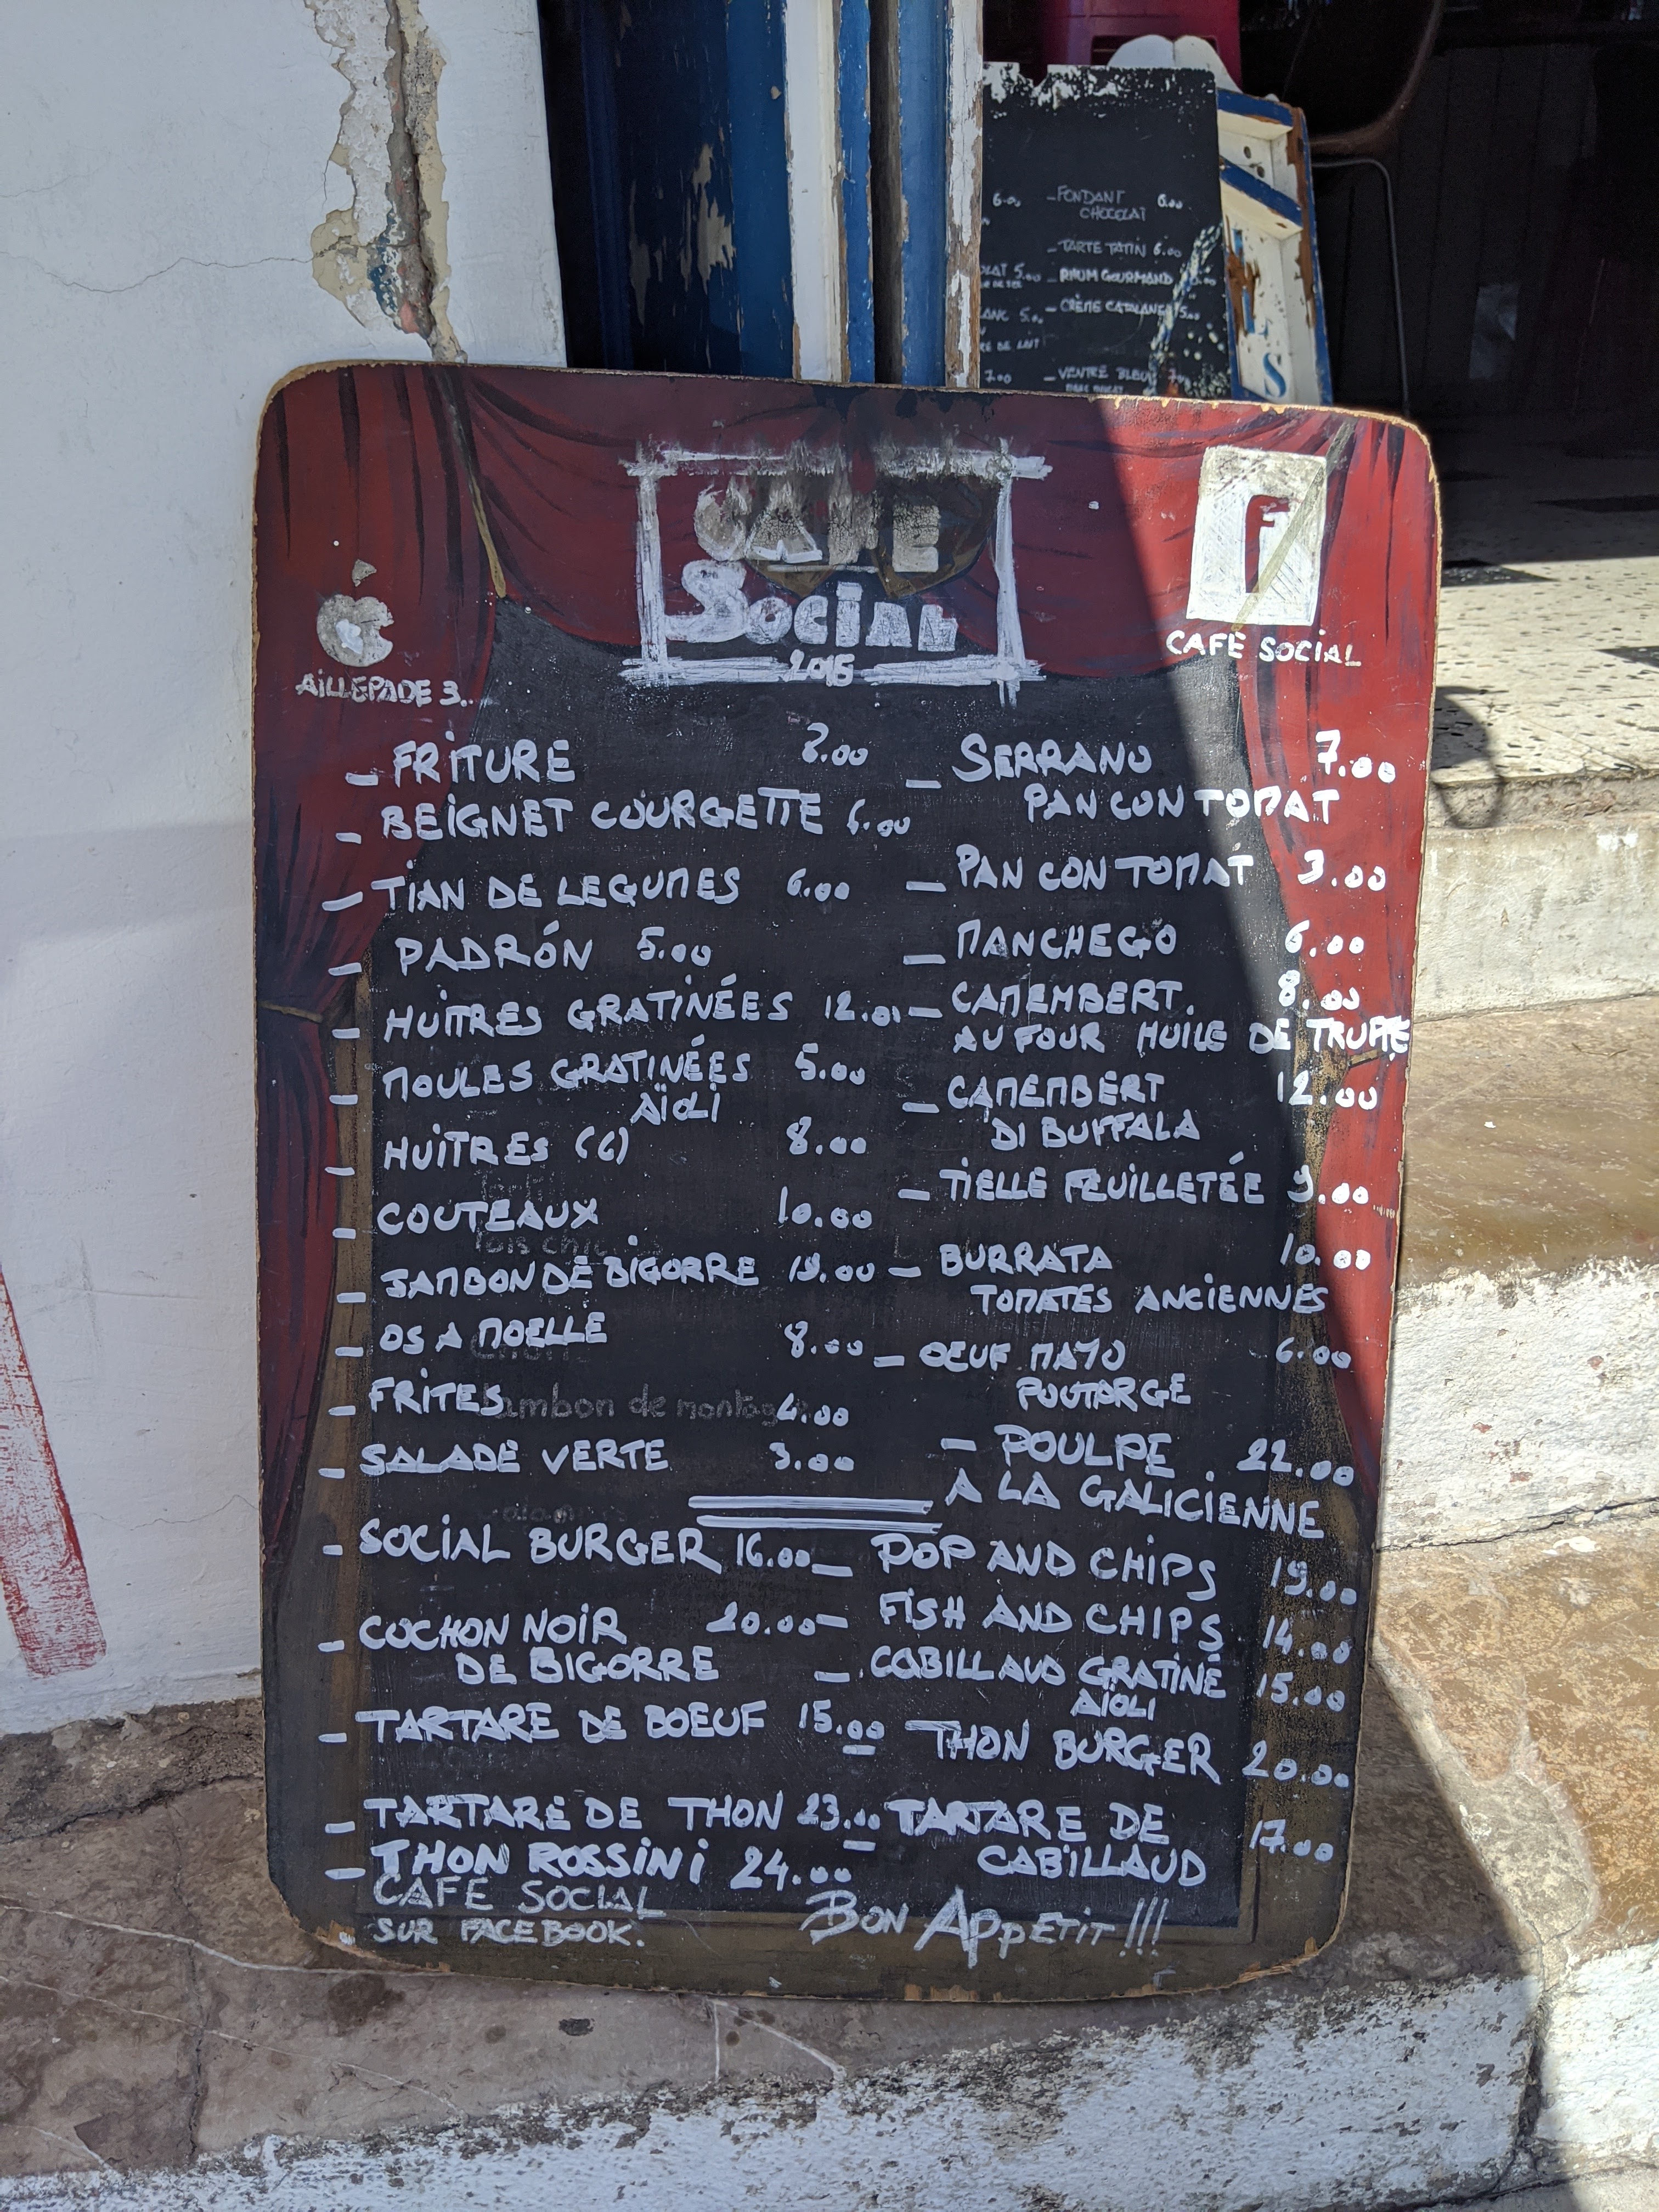 6.00 - FONDANT 6.00
CHOCOLAT
- TARTE TATIN 6.00
5.00 - RHUM GOURMAND
5.00 - CRÈME CATALANE 5.00
RE DE LAIT
7.00 - VENTRE BLEU
CAFE
SOCIAL
2015
AILLEPADE 3..
F
CAFE SOCIAL
- FRITURE
- BEIGNET COURGETTE 6.00
- TIAN DE LEGUMES 6.00
- PADRÓN 5.00
- HUITRES GRATINÉES 12.00
- MOULES GRATINÉES 5.00
AÏOLI
- HUITRES (6) 8.00
- COUTEAUX 10.00
- JAMBON DE BIGORRE 19.00
- OS A MOELLE 8.00
- FRITES 4.00
ambon de montag
- SALADE VERTE 3.00
- SERRANO 7.00
PAN CON TOMAT
- PAN CON TOMAT 3.00
- MANCHEGO 6.00
- CAMEMBERT 8.00
AU FOUR HUILE DE TRUFFE
- CAMEMBERT 12.00
DI BUFFALA
- TIELLE FEUILLETÉE 9.00
- BURRATA 10.00
TOMATES ANCIENNES
- OEUF MAYO 6.00
POUTARGE
- POULPE 22.00
A LA GALICIENNE
- SOCIAL BURGER 16.00
- COCHON NOIR 20.00
DE BIGORRE
- TARTARE DE BOEUF 15.00
- TARTARE DE THON 23.00
- THON ROSSINI 24.00
- POP AND CHIPS 19.00
- FISH AND CHIPS 14.00
- CABILLAUD GRATINÉ 15.00
AÏOLI
- THON BURGER 20.00
- TARTARE DE 17.00
CABILLAUD
CAFE SOCIAL
SUR FACEBOOK.
BON APPETIT !!!